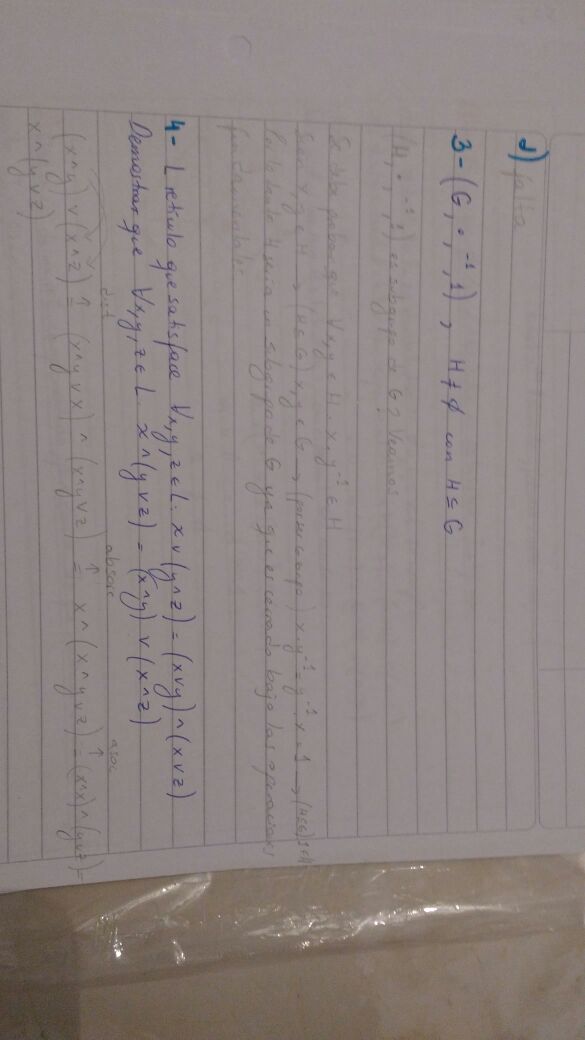 d) falta
3- (G, ·, ⁻¹, 1) , H ≠ ∅ con H ⊆ G
(H, ·, ⁻¹, 1) es subgrupo de G? Veamos
Se debe probar que ∀x,y ∈ H · x · y⁻¹ ∈ H
Sean x,y ∈ H → (H⊆G) x,y ∈ G → (por ser Grupo) x·y⁻¹ = y⁻¹·x = 1 → (H⊆G) 1∈H
Por lo tanto H seria un subgrupo de G ya que es cerrado bajo las operaciones
fundamentales.
4- L reticulo que satisface ∀x,y,z ∈ L · x ∨ (y ∧ z) = (x ∨ y) ∧ (x ∨ z)
Demostrar que ∀x,y,z ∈ L · x ∧ (y ∨ z) = (x ∧ y) ∨ (x ∧ z)
dist absorc asoc
(x ∧ y) ∨ (x ∧ z) = (x ∧ y ∨ x) ∧ (x ∧ y ∨ z) = x ∧ (x ∧ y ∨ z) = (x ∧ x) ∧ (y ∨ z) =
x ∧ (y ∨ z)